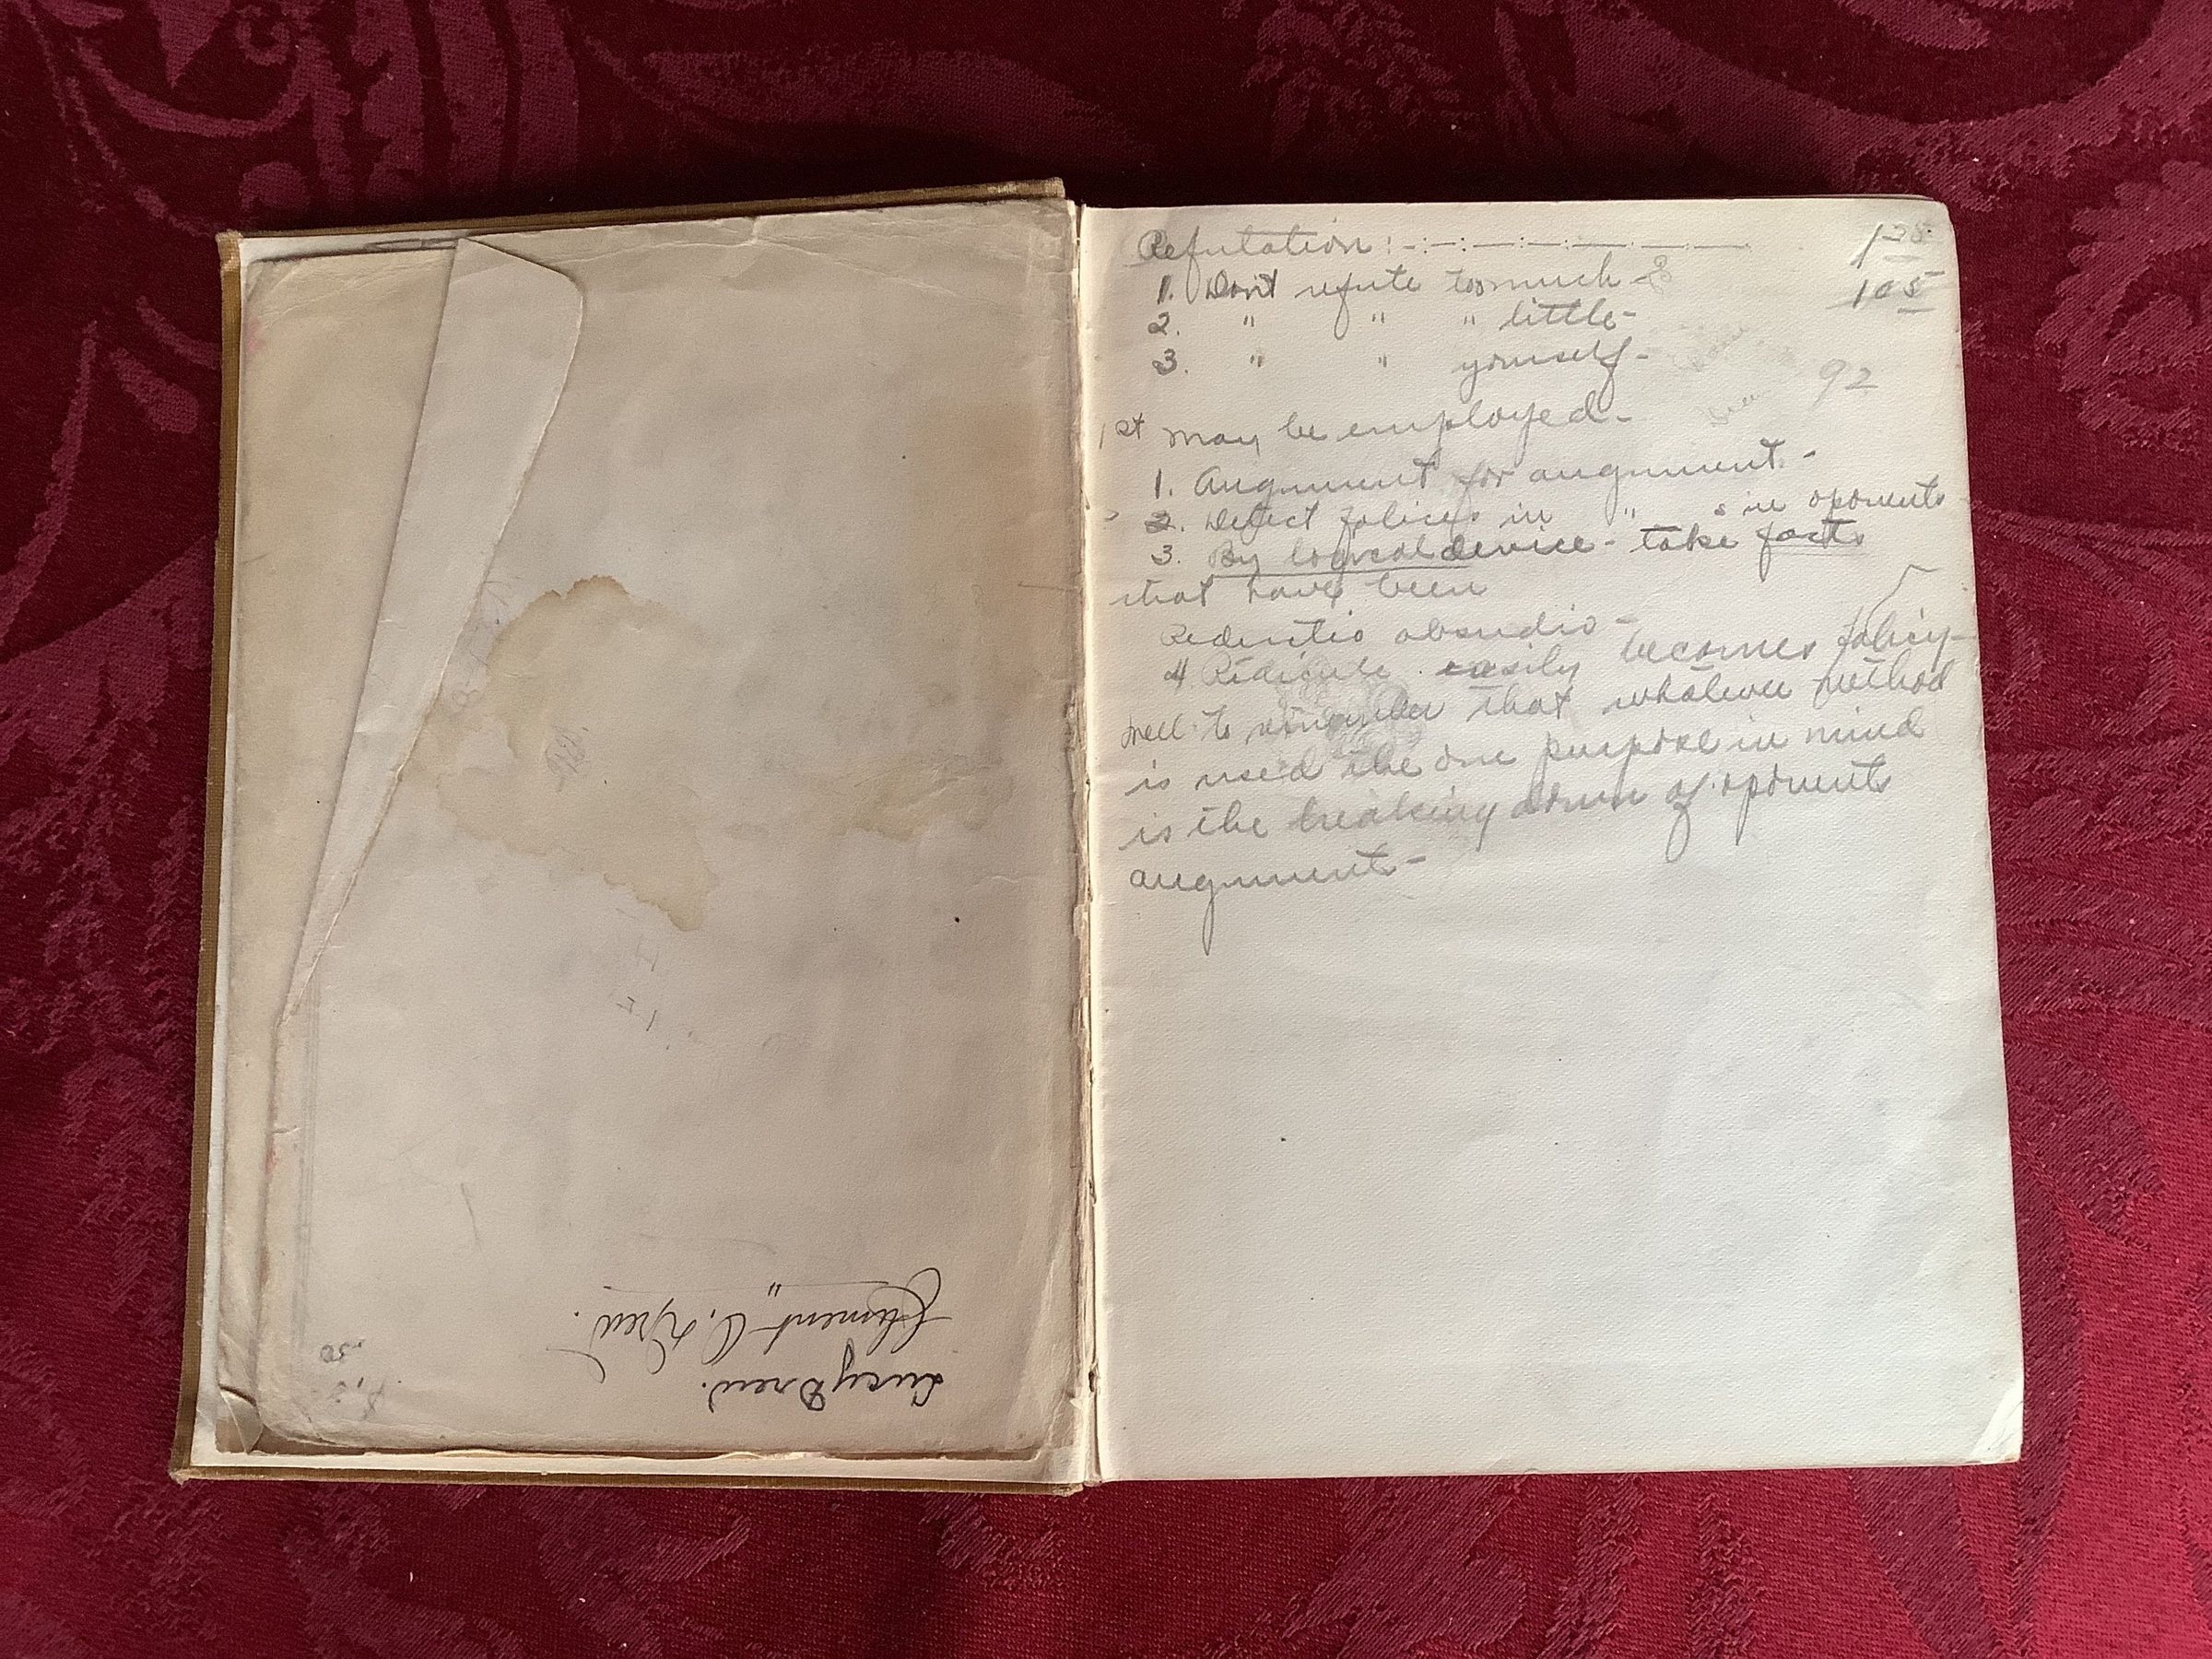 Lucy Drew.
Clement C. Drew.
"
.50
Refutation :-:-:-
1. Don't refute too much -
2. " " " little -
3. " " yourself -
1st may be employed -
1. Augument for augument. -
2. Detect falices in " s in oponents
3. By logical device - take facts
that have been
Reductio absurdio -
4 Ridicule easily becomes falicy -
well to remember that whatever method
is used the one purpose in mind
is the breaking down of oponents
augument -
125
105
92